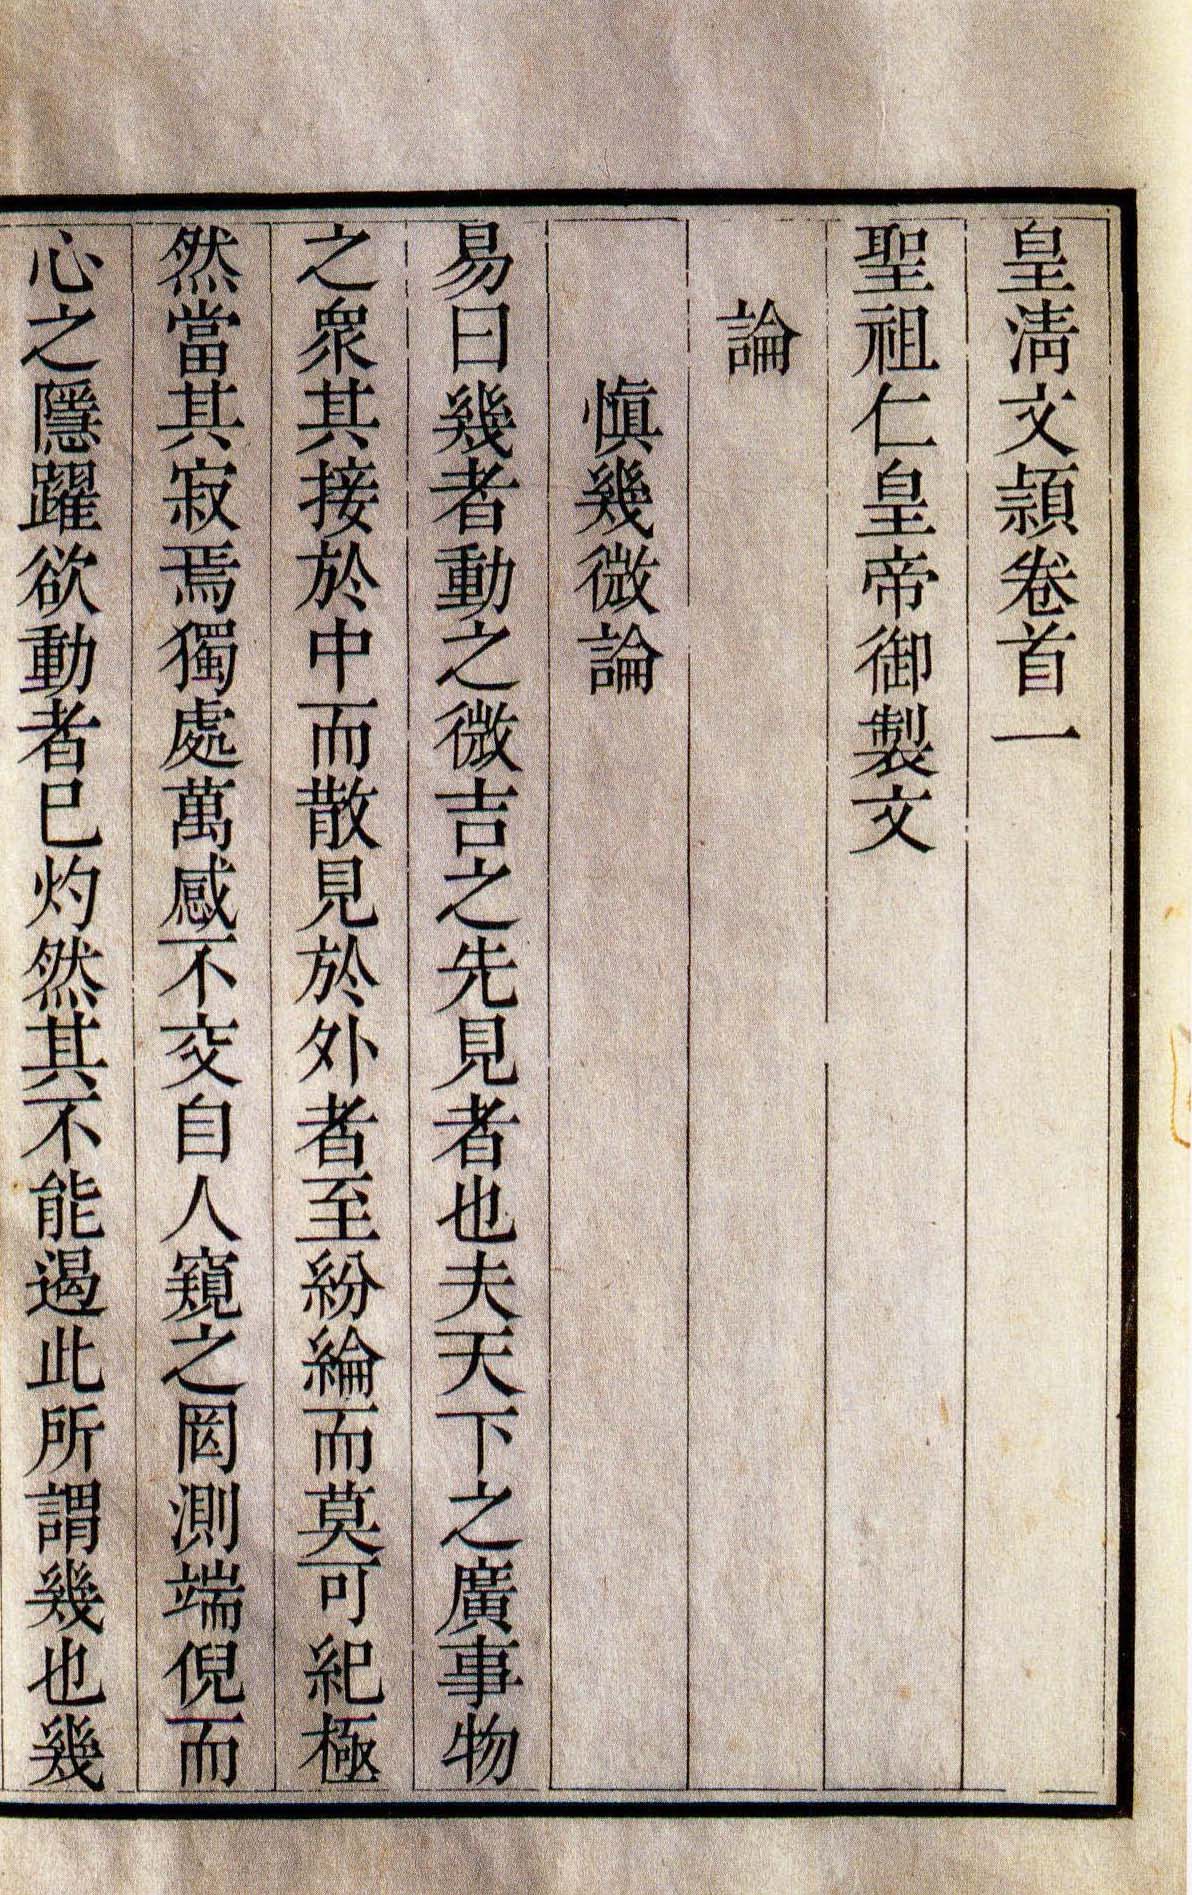 皇淸文頴卷首一
聖祖仁皇帝御製文
論
愼幾微論
易曰幾者動之微吉之先見者也夫天下之廣事物
之衆其接於中而散見於外者至紛綸而莫可紀極
然當其寂焉獨處萬感不交自人窺之罔測端倪而
心之隱躍欲動者已灼然其不能遏此所謂幾也幾